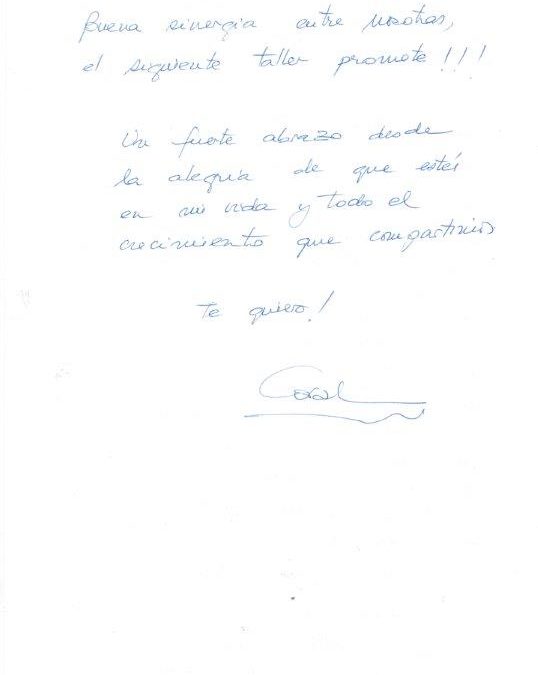 Buena sinergia entre nosotras,
el siguiente taller promete!!!
Un fuerte abrazo desde
la alegría de que estés
en mi vida y todo el
crecimiento que compartimos
Te quiero!
Coral